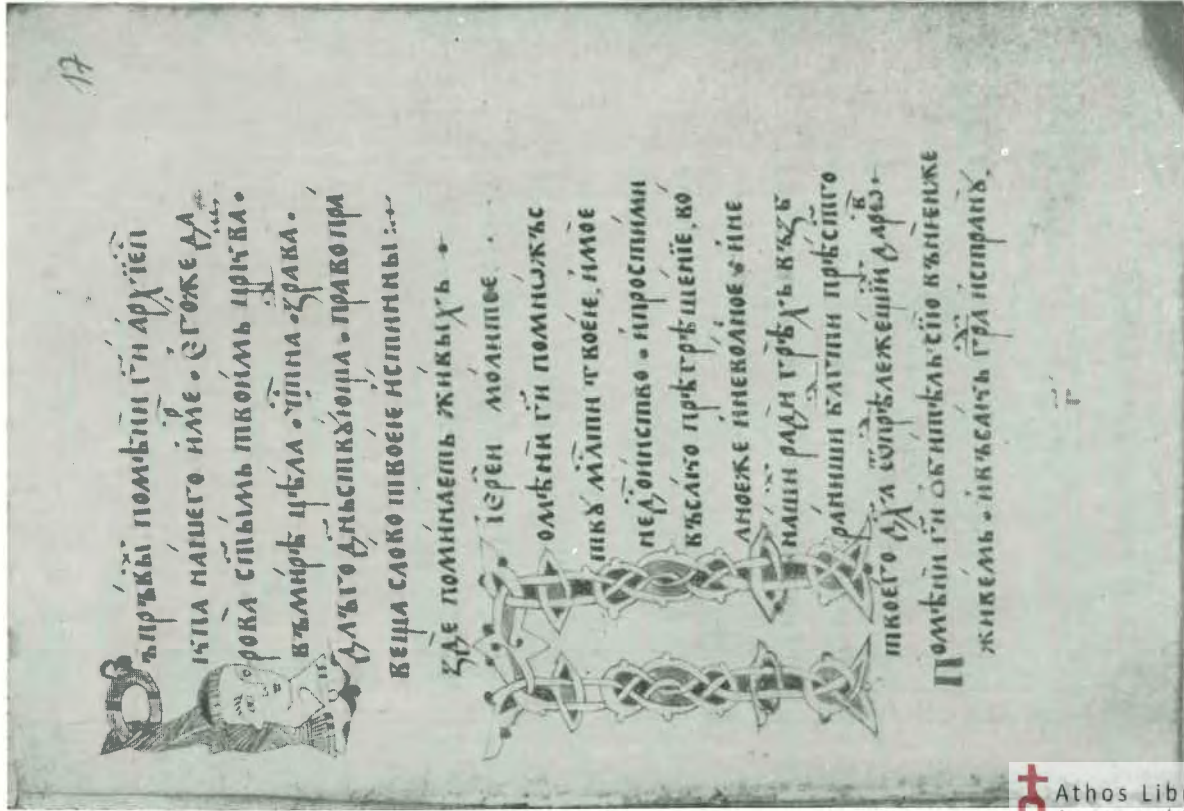 17
Въ прⸯвы помѣни ги архіеп
кпа нашего имⷬе · егоже да
рова ст҃ымь твоимь црⸯквамь ·
въ мирѣ цѣла · чⸯтна · здрава ·
длъго дньствꙋюща · право пра
веща слово твоеѥ истинны :·–
Зде поминаеть живыхъ ·
іереи молитвꙋ
Помѣни ги по множьс
твꙋ млⷭти твоеѥ, и мое
недⷭоиньство · и прости ми
въсако прѣгрѣшенїе, во
лноеже и неволное · и не
наших ради грѣхъ въз
браниши блгⷣти прѣстⷢо
твоего дх҃а ѿ прѣдлежещих даров ·
Помѣни ги обитѣль сїю въ нѥиже
живемь · и въсакъ градⸯ и странꙋ.
Athos Lib